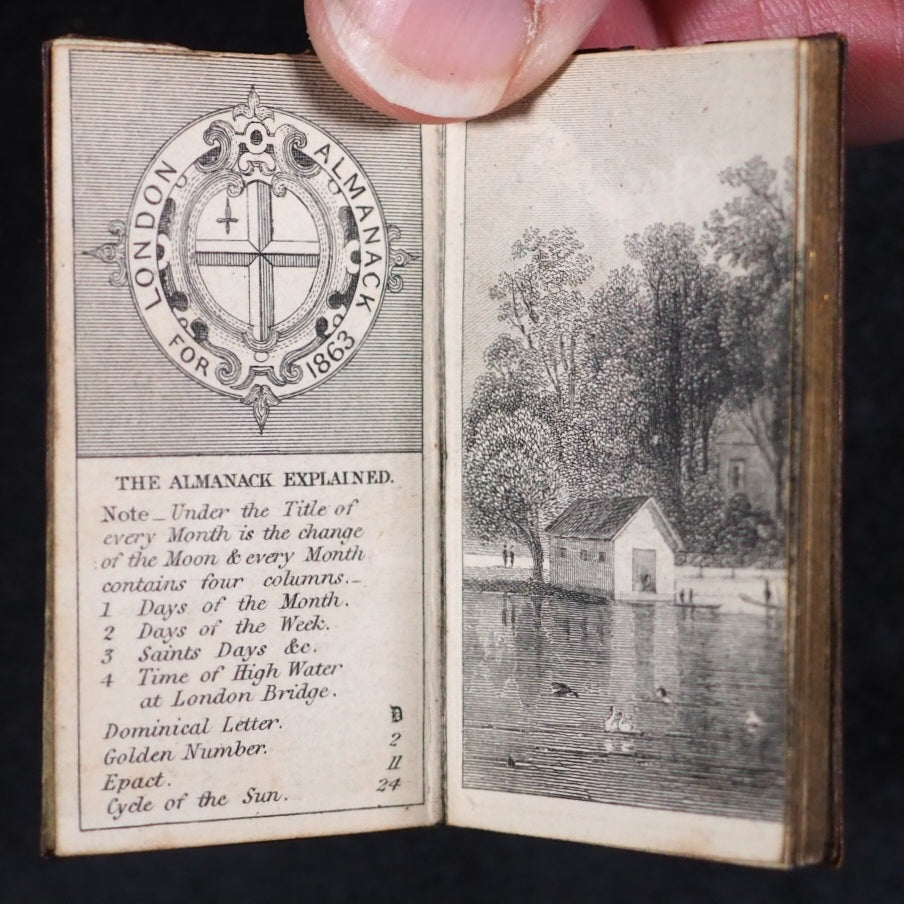 LONDON ALMANACK
FOR 1863
THE ALMANACK EXPLAINED.
Note _ Under the Title of
every Month is the change
of the Moon & every Month
contains four columns._
1 Days of the Month.
2 Days of the Week.
3 Saints Days &c.
4 Time of High Water
at London Bridge.
Dominical Letter. D
Golden Number. 2
Epact. 11
Cycle of the Sun. 24